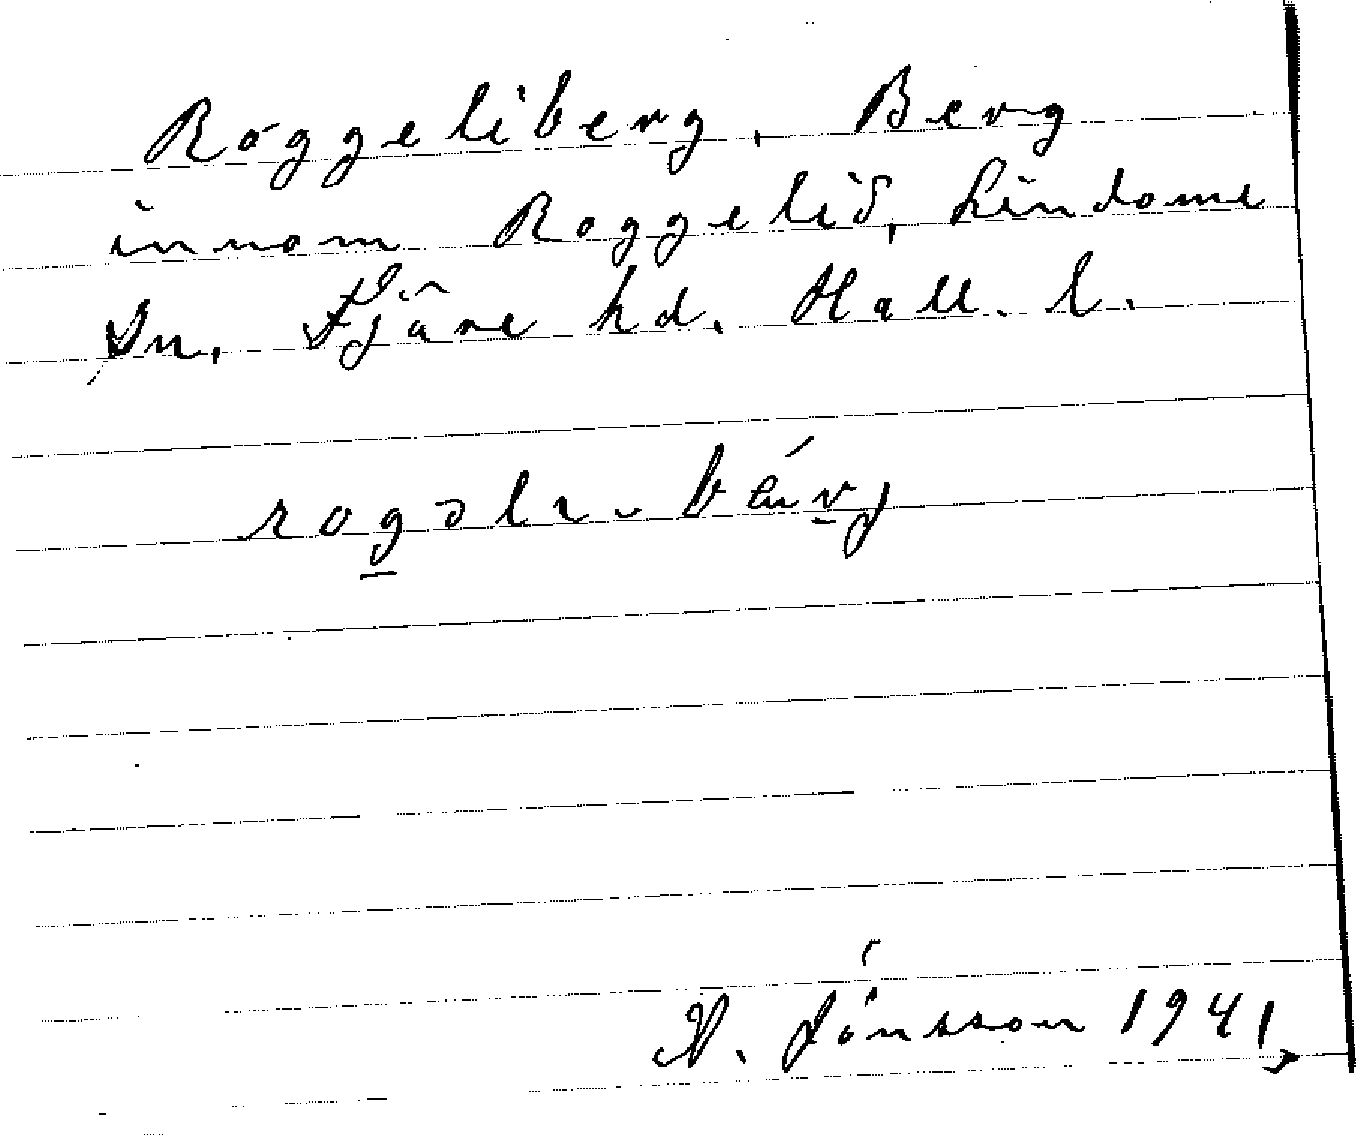 Roggeliberg, Berg
innom Roggelid, Lindome
Sn. Fjäre hd. Hall. l.
rogəlɩ-bǽrj
N. Jónsson 1941